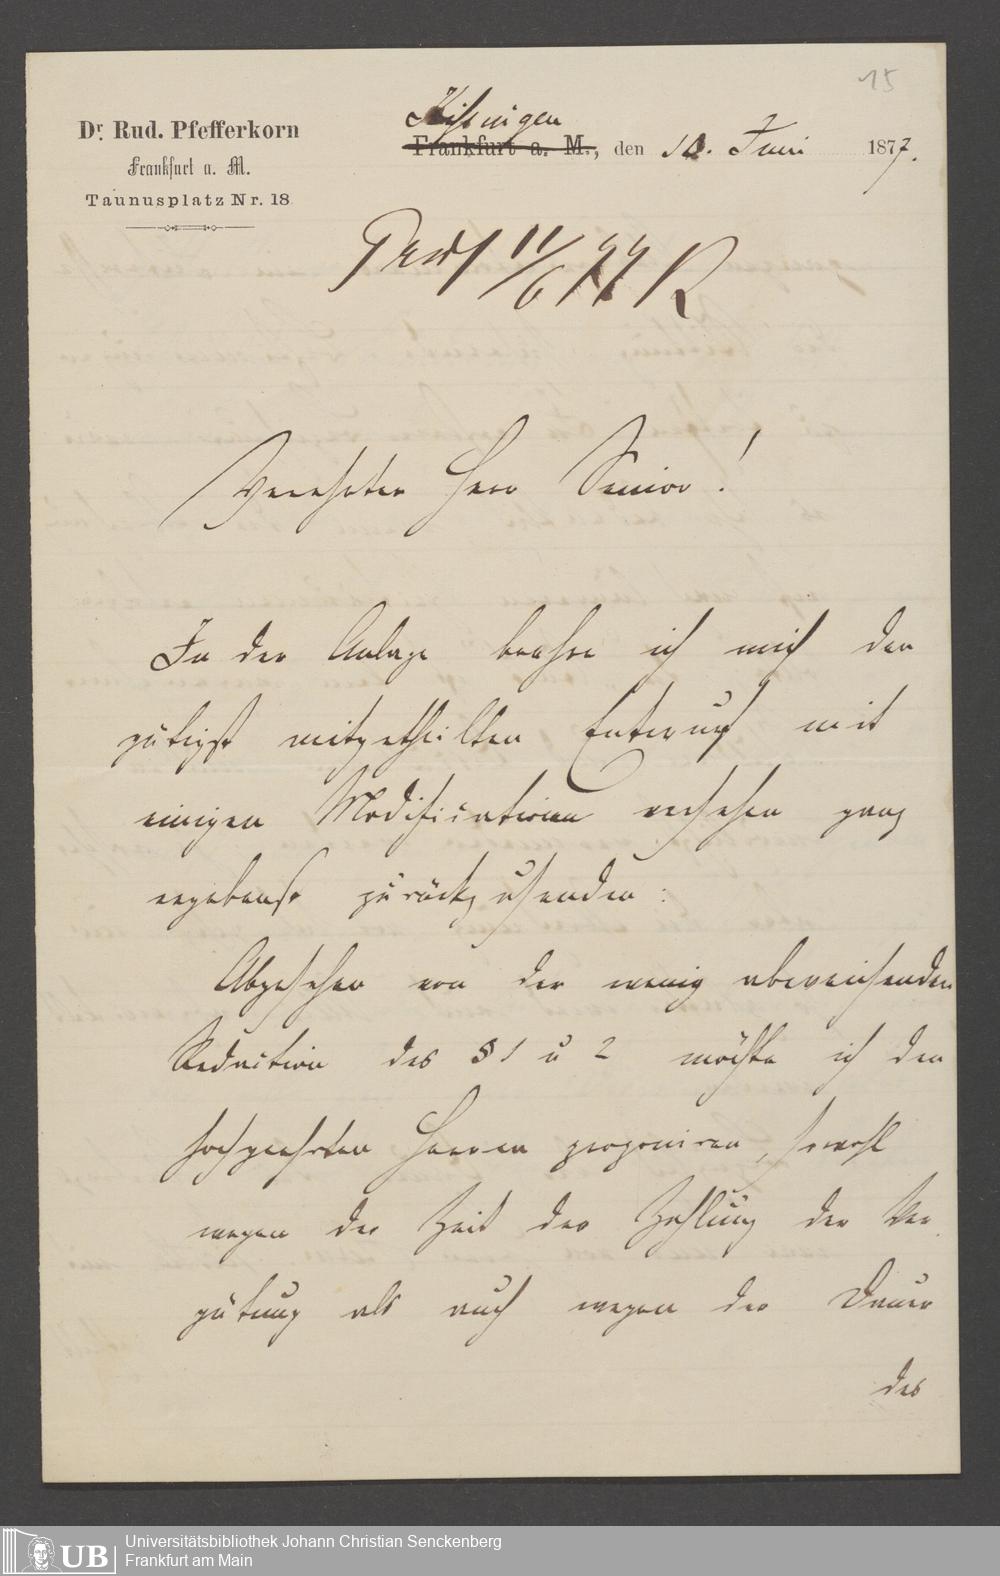 15
Dr. Rud. Pfefferkorn
Frankfurt a. M.
Taunusplatz Nr. 18
Kissingen
Frankfurt a. M., den 10. Juni 1877.
Präs 11/6 77 R
Verehrter Herr Senior!
In der Anlage beehre ich mich den
gütigst mitgetheilten Entwurf mit
einigen Modificationen versehen ganz
ergebenst zurückzusenden:
Abgesehen von der wenig abweichenden
Redaction des § 1 u 2 möchte ich den
hochgeehrten Herren proponiren, sowohl
wegen der Zeit der Zahlung der Ver
gütung als auch wegen der Dauer
des
Universitätsbibliothek Johann Christian Senckenberg
Frankfurt am Main
UB